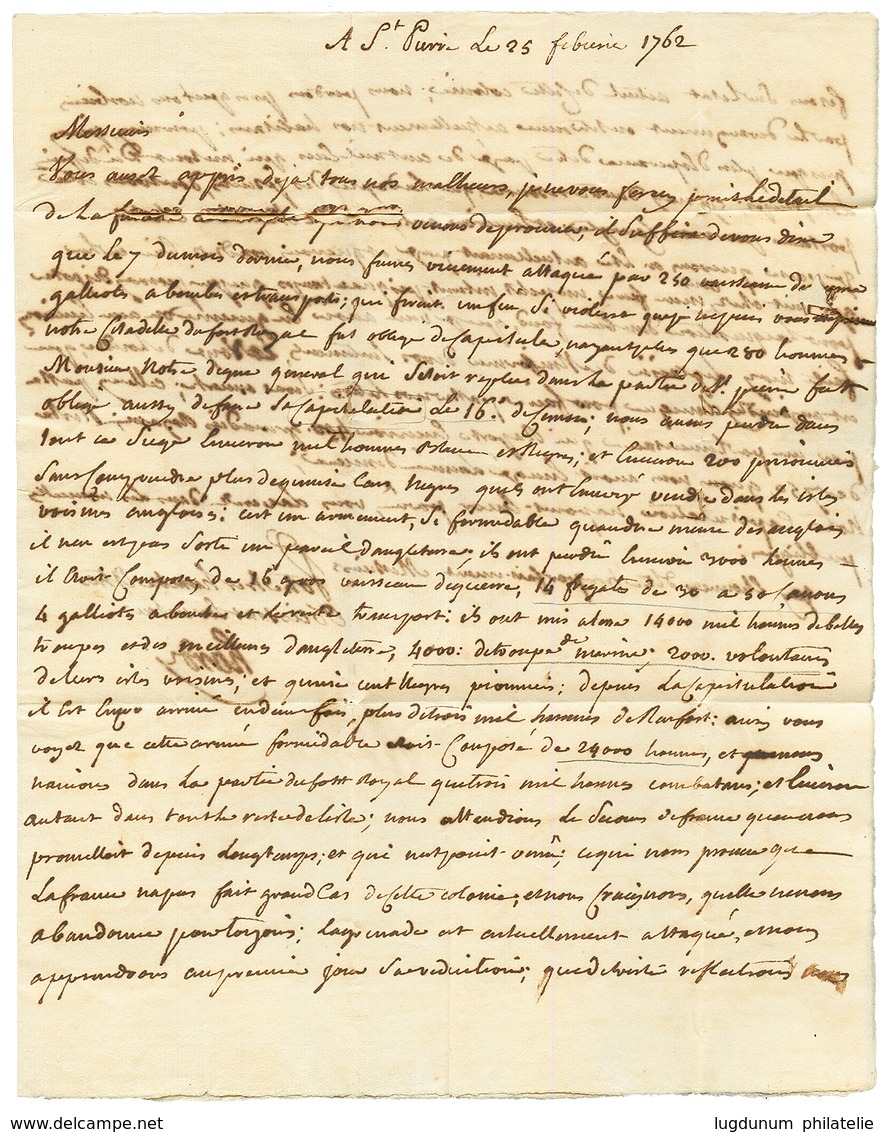 A St. Pierre Le 25 febvrie 1762
Messieurs
Vous aurez appris deja tous nos malheurs, je ne vous feray jamais le detail
de La nous venons deprouver; il Suffira de vous dire
que le 7 du mois dernie, nous fumes vivement attaqué par 250 vaisseaux de
galliotes a bombes et transports; qui firent un feu Si violent que je ne puis vous
notre Citadelle du fort Royal fut obligé de Capituler, nayant plus que 280 hommes
Monsieur Notre digne general qui Setoit replié dans la partie de St. pierre fut
obligé aussy de faire Sa Capitulation Le 16e. de Ce mois; nous avons perdu dans
tout ce Siege Environ mil hommes Blancs et Negres; et Environ 200 prisonniers
Sans Comprendre plus de quinze Cens Negres quils ont Envoyé vendre dans les isles
voisines angloises; cest un armement, Si formidable quau dire meme des anglois
il nen est pas Sorti un pareil dangleterre; ils ont perdu Environ 3000 hommes
il Etoit Composé, de 16 gros vaisseaux de guerre, 14 fregates de 30 a 50 Canons
4 galliotes a bombes et le reste transport: ils ont mis a terre 14000 mil hommes de belles
troupes et des meilleures dangleterre, 4000: de troupe de marine; 2000. volontaires
de leurs isles voisines; et quinze cent Negres pionniers; depuis La Capitulation
il Est Encore arrivé en deux fois, plus de trois mil hommes de Renfort: ainsi vous
voyez que cette armée formidable etoit Composé de 24000 hommes, et que nous
navions dans La partie du fort Royal que trois mil hommes combatans; et Environ
autant dans tout le reste de lisle; nous attendions Le Secours de france que
promettoit depuis Longtemps; et qui nest point venu; ce qui nous prouve que
La france na pas fait grand Cas de Cette colonie, et nous Craignons, quelle ne nous
abandonne pour toujours; La grenade est actuellement attaqué, et nous
apprendrons au premier jour Sa reduction; que de triste reflections
www.delcampe.net
lugdunum philatelie